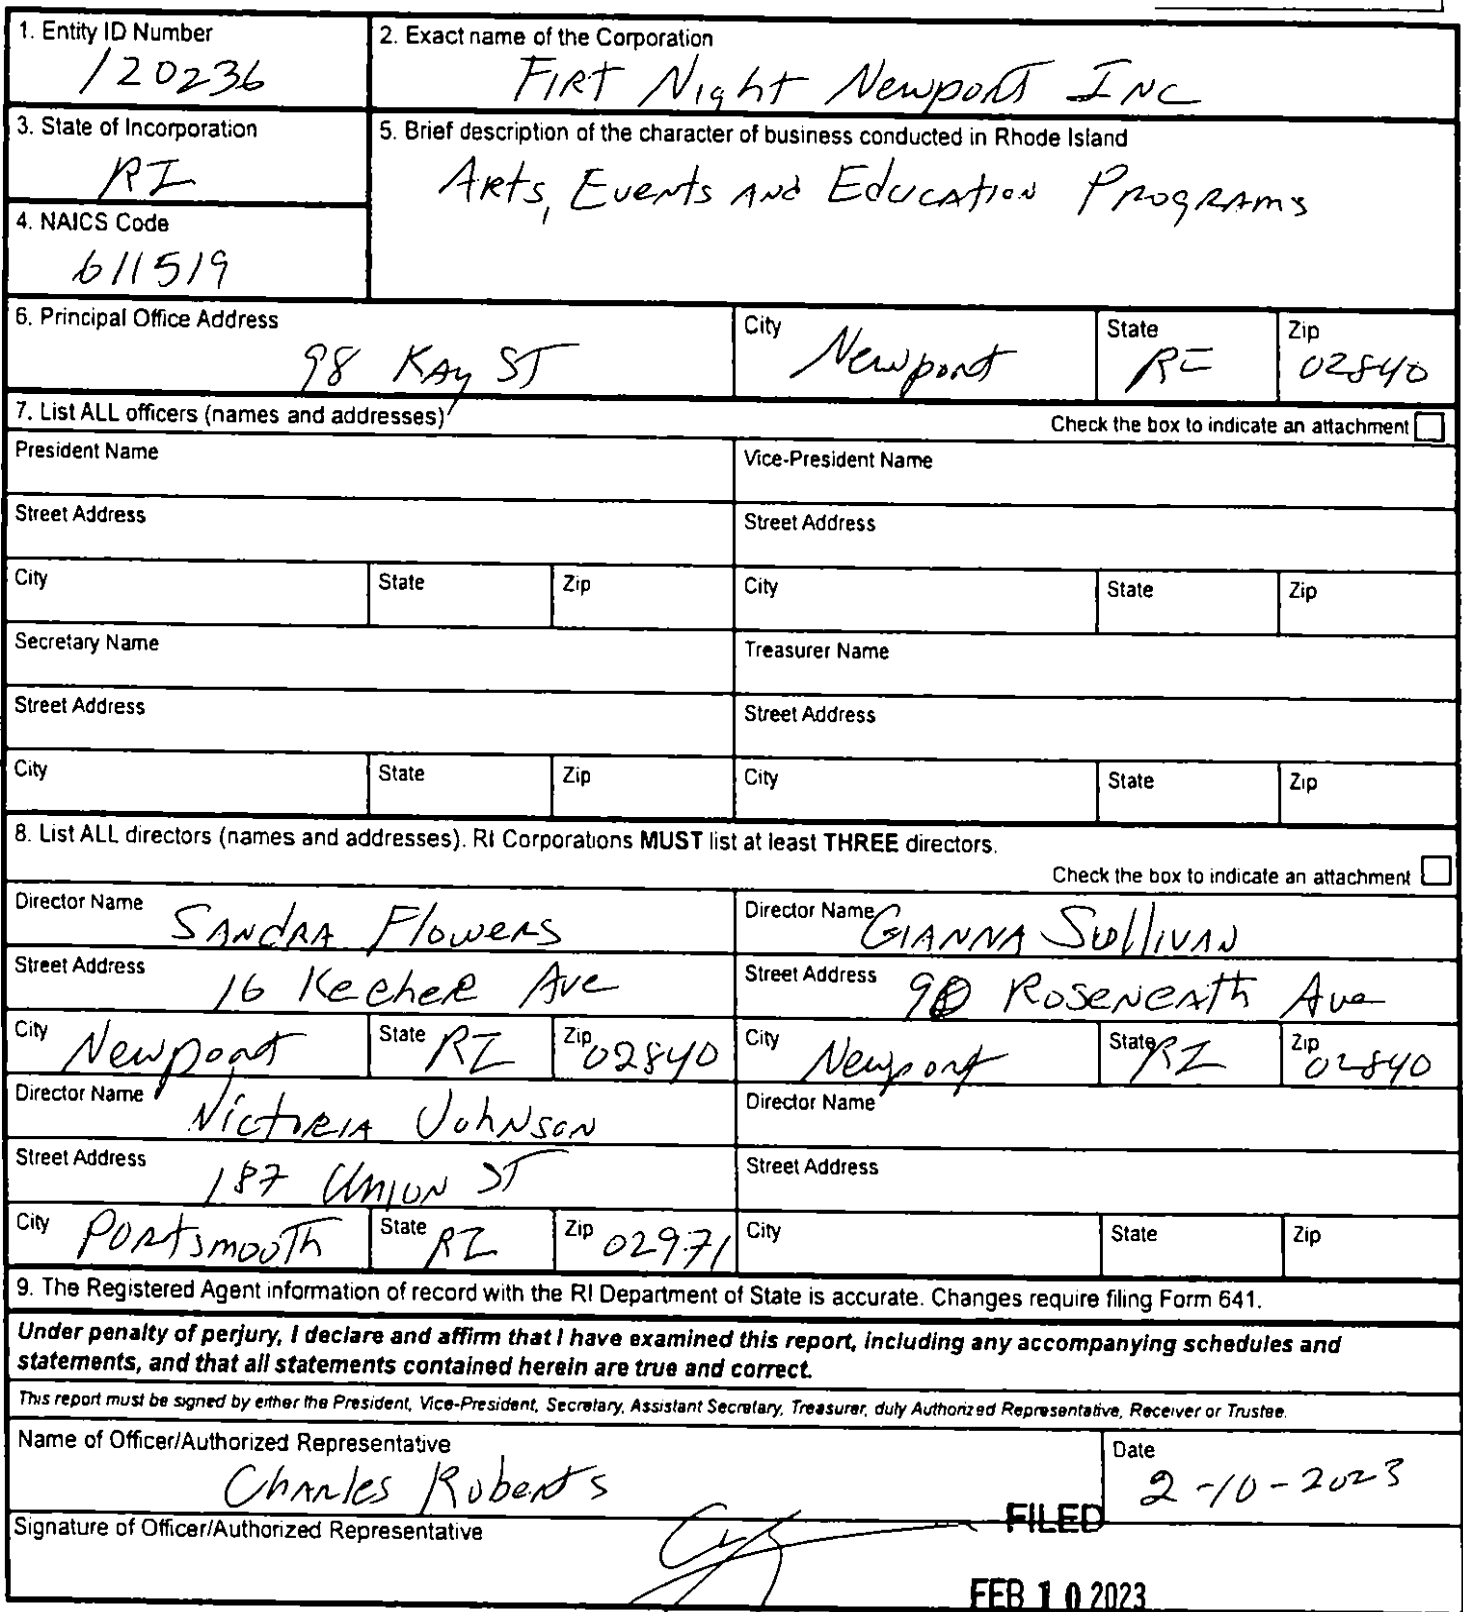 1. Entity ID Number
120236
2. Exact name of the Corporation
FIRT Night Newport INC
3. State of Incorporation
RI
5. Brief description of the character of business conducted in Rhode Island
Arts, Events And Education Programs
4. NAICS Code
611519
6. Principal Office Address
98 Kay ST
City
Newport
State
RI
Zip
02840
7. List ALL officers (names and addresses)
Check the box to indicate an attachment
President Name
Vice-President Name
Street Address
Street Address
City State Zip City State Zip
Secretary Name
Treasurer Name
Street Address
Street Address
City State Zip City State Zip
8. List ALL directors (names and addresses). RI Corporations MUST list at least THREE directors.
Check the box to indicate an attachment
Director Name SANdRA Flowers
Director Name GIANNA Sullivan
Street Address 16 Keeher Ave
Street Address 90 Roseneath Ave
City Newport State RI Zip 02840
City Newport State RI Zip 02840
Director Name Victoria Johnson
Director Name
Street Address 187 Union ST
Street Address
City Portsmouth State RI Zip 02971
City State Zip
9. The Registered Agent information of record with the RI Department of State is accurate. Changes require filing Form 641.
Under penalty of perjury, I declare and affirm that I have examined this report, including any accompanying schedules and
statements, and that all statements contained herein are true and correct.
This report must be signed by either the President, Vice-President, Secretary, Assistant Secretary, Treasurer, duly Authorized Representative, Receiver or Trustee.
Name of Officer/Authorized Representative
Charles Roberts
Date
2-10-2023
Signature of Officer/Authorized Representative
FILED
FEB 10 2023